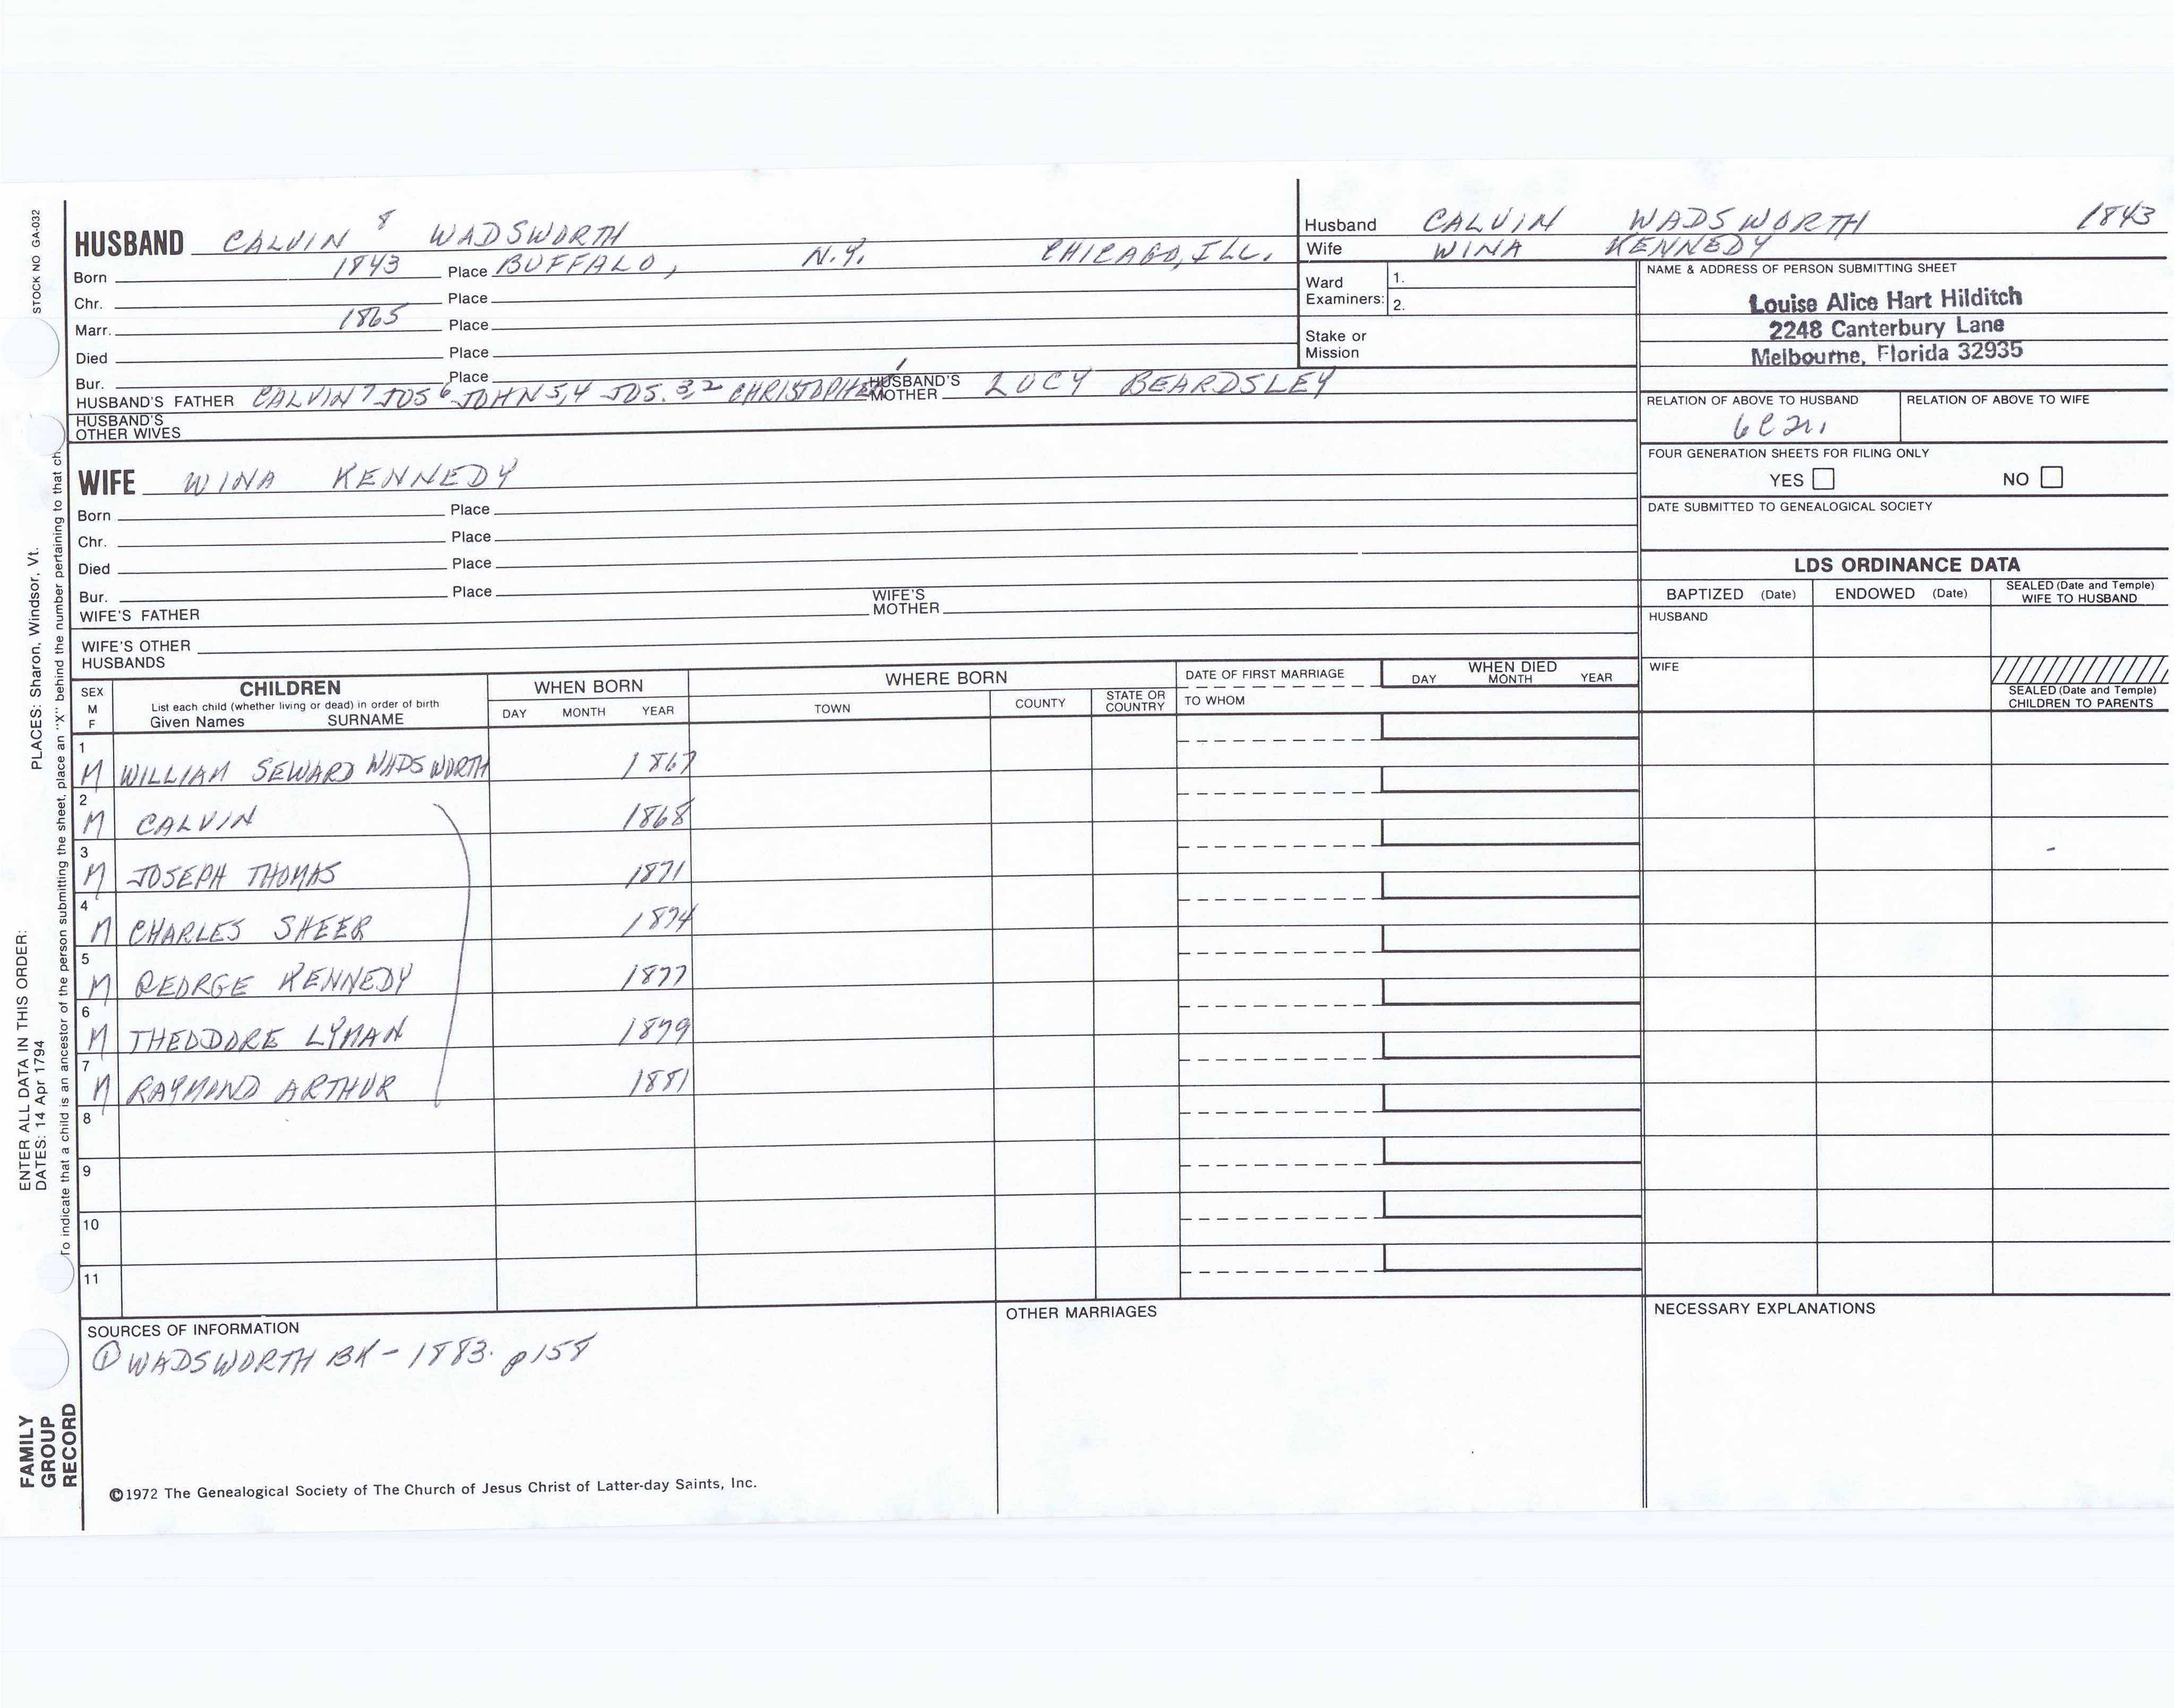 STOCK NO GA-032
HUSBAND CALVIN 8 WADSWORTH
Born 1843 Place BUFFALO, N.Y. CHICAGO, ILL.
Chr. Place
Marr. 1865 Place
Died Place
Bur. Place
HUSBAND'S FATHER CALVIN 7 JOS 6 JOHN 5,4 JOS. 3,2 CHRISTOPHER 1 HUSBAND'S MOTHER LUCY BEARDSLEY
HUSBAND'S OTHER WIVES
Husband CALVIN WADSWORTH 1843
Wife WINA KENNEDY
Ward Examiners: 1.
2.
Stake or Mission
NAME & ADDRESS OF PERSON SUBMITTING SHEET
Louise Alice Hart Hilditch
2248 Canterbury Lane
Melbourne, Florida 32935
RELATION OF ABOVE TO HUSBAND RELATION OF ABOVE TO WIFE
FOUR GENERATION SHEETS FOR FILING ONLY
YES NO
DATE SUBMITTED TO GENEALOGICAL SOCIETY
WIFE WINA KENNEDY
Born Place
Chr. Place
Died Place
Bur. Place
WIFE'S FATHER WIFE'S MOTHER
WIFE'S OTHER HUSBANDS
LDS ORDINANCE DATA
BAPTIZED (Date) ENDOWED (Date) SEALED (Date and Temple) WIFE TO HUSBAND
HUSBAND
WIFE
SEALED (Date and Temple) CHILDREN TO PARENTS
SEX M F
CHILDREN
List each child (whether living or dead) in order of birth
Given Names SURNAME
WHEN BORN
DAY MONTH YEAR
WHERE BORN
TOWN COUNTY STATE OR COUNTRY
DATE OF FIRST MARRIAGE
TO WHOM
WHEN DIED
DAY MONTH YEAR
1 M WILLIAM SEWARD WADSWORTH 1867
2 M CALVIN 1868
3 M JOSEPH THOMAS 1871
4 M CHARLES SHEER 1874
5 M GEORGE KENNEDY 1877
6 M THEODORE LYMAN 1879
7 M RAYMOND ARTHUR 1881
8
9
10
11
SOURCES OF INFORMATION
① WADSWORTH BK - 1883. p158
OTHER MARRIAGES
NECESSARY EXPLANATIONS
©1972 The Genealogical Society of The Church of Jesus Christ of Latter-day Saints, Inc.
FAMILY
GROUP
RECORD
ENTER ALL DATA IN THIS ORDER:
DATES: 14 Apr 1794 PLACES: Sharon, Windsor, Vt.
To indicate that a child is an ancestor of the person submitting the sheet, place an "X" behind the number pertaining to that ch